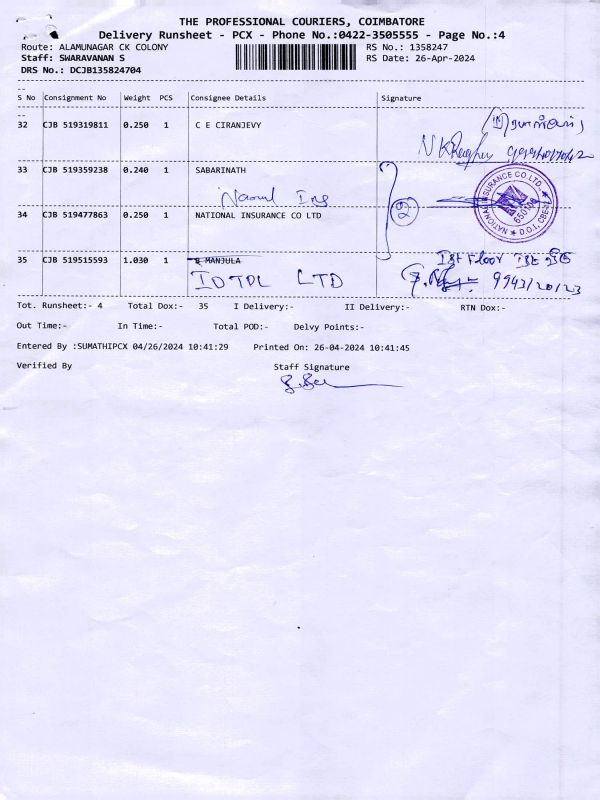 THE PROFESSIONAL COURIERS, COIMBATORE
Delivery Runsheet - PCX - Phone No.:0422-3505555 - Page No.:4
Route: ALAMUNAGAR CK COLONY RS No.: 1358247
Staff: SWARAVANAN S RS Date: 26-Apr-2024
DRS No.: DCJB135824704
S No Consignment No Weight PCS Consignee Details Signature
32 CJB 519319811 0.250 1 C E CIRANJEVY
33 CJB 519359238 0.240 1 SABARINATH
34 CJB 519477863 0.250 1 NATIONAL INSURANCE CO LTD
2
NATIONAL INSURANCE CO LTD. ★ D.O.I, CBE-1 ★
35 CJB 519515593 1.030 1 S MANJULA
IDTPL LTD
Ist Floor
9943/20/23
Tot. Runsheet:- 4 Total Dox:- 35 I Delivery:- II Delivery:- RTN Dox:-
Out Time:- In Time:- Total POD:- Delvy Points:-
Entered By :SUMATHIPCX 04/26/2024 10:41:29 Printed On: 26-04-2024 10:41:45
Verified By Staff Signature